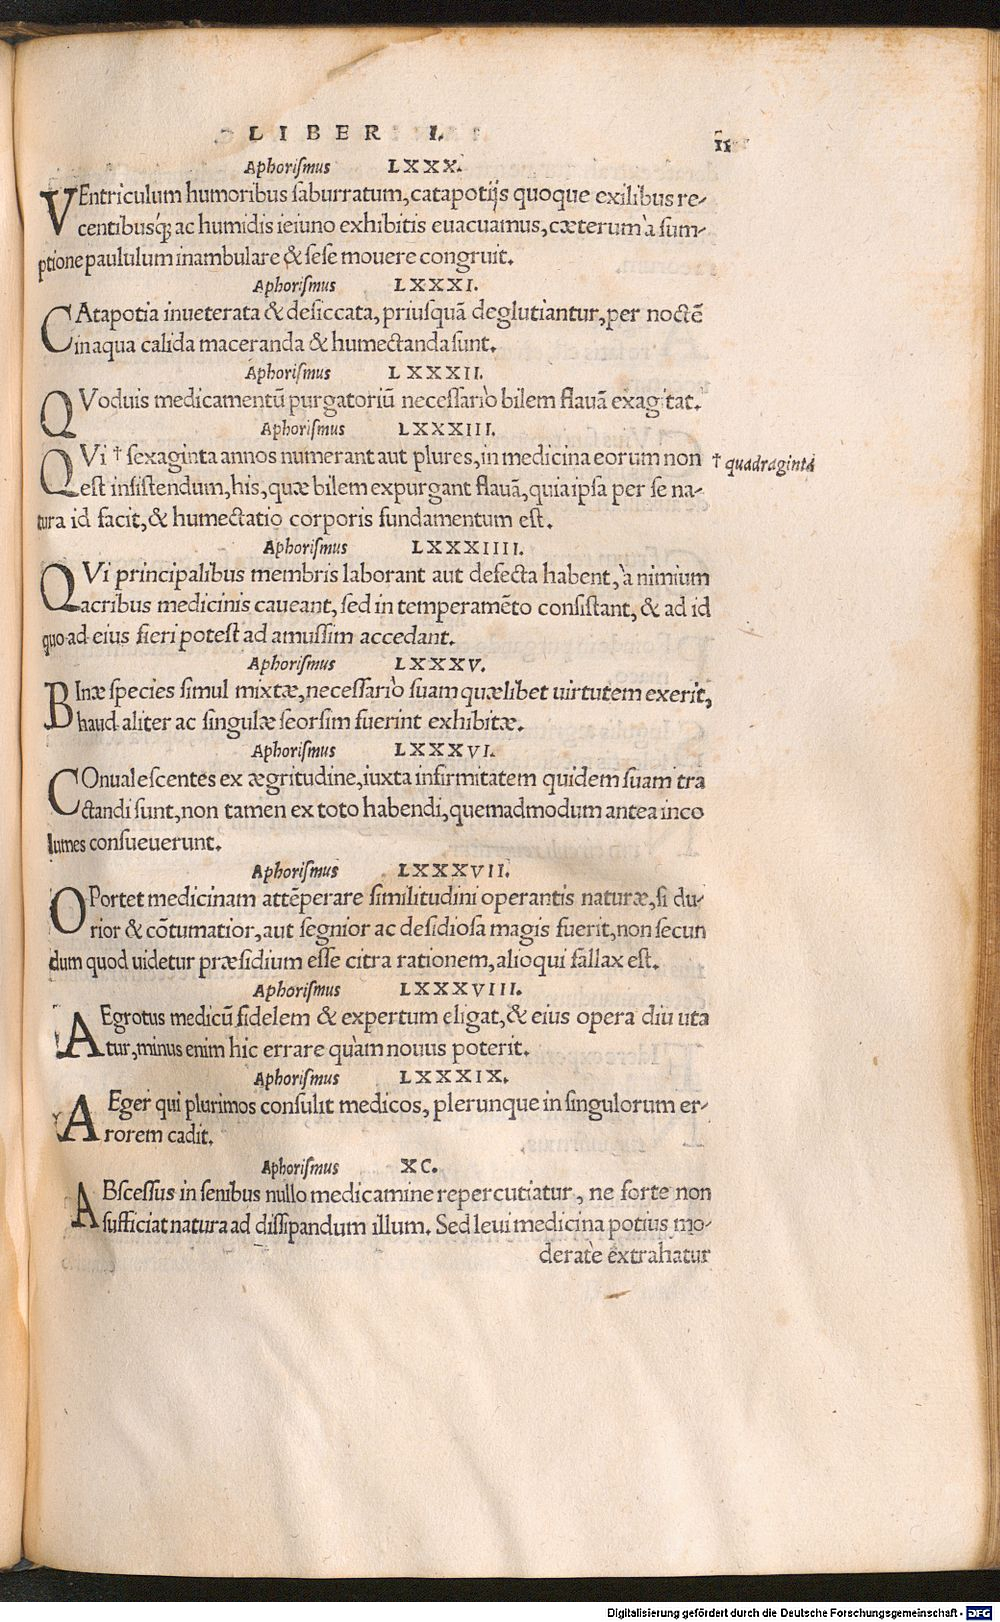 LIBER I.
11
Aphorismus LXXX.
VEntriculum humoribus ſaburratum, catapotijs quoque exilibus re-
centibusq́; ac humidis ieiuno exhibitis euacuamus, cæterum à ſum-
ptione paululum inambulare & ſeſe mouere congruit.
Aphoriſmus LXXXI.
CAtapotia inueterata & deſiccata, priuſquã deglutiantur, per noctẽ
in aqua calida maceranda & humectanda ſunt.
Aphoriſmus LXXXII.
QVoduis medicamentũ purgatoriũ neceſſariò bilem flauã exagitat.
Aphoriſmus LXXXIII.
QVi † ſexaginta annos numerant aut plures, in medicina eorum non
† quadraginta
eſt inſiſtendum, his, quæ bilem expurgant flauã, quia ipſa per ſe na-
tura id facit, & humectatio corporis fundamentum eſt.
Aphoriſmus LXXXIIII.
QVi principalibus membris laborant aut defecta habent, à nimium
acribus medicinis caueant, ſed in temperamẽto conſiſtant, & ad id
quoad eius fieri poteſt ad amuſſim accedant.
Aphoriſmus LXXXV.
BInæ ſpecies ſimul mixtæ, neceſſariò ſuam quælibet uirtutem exerit,
haud aliter ac ſingulæ ſeorſim fuerint exhibitæ.
Aphoriſmus LXXXVI.
COnualeſcentes ex ægritudine, iuxta infirmitatem quidem ſuam tra
ctandi ſunt, non tamen ex toto habendi, quemadmodum antea inco
lumes conſueuerunt.
Aphoriſmus LXXXVII.
OPortet medicinam attẽperare ſimilitudini operantis naturæ, ſi du-
rior & cõtumatior, aut ſegnior ac deſidioſa magis fuerit, non ſecun
dum quod uidetur præſidium eſſe citra rationem, alioqui fallax eſt.
Aphoriſmus LXXXVIII.
AEgrotus medicũ fidelem & expertum eligat, & eius opera diu uta
tur, minus enim hic errare quàm nouus poterit.
Aphoriſmus LXXXIX.
AEger qui plurimos conſulit medicos, plerunque in ſingulorum er-
rorem cadit.
Aphoriſmus XC.
ABſceſſus in ſenibus nullo medicamine repercutiatur, ne forte non
ſufficiat natura ad diſſipandum illum. Sed leui medicina potius mo-
deratè extrahatur
Digitalisierung gefördert durch die Deutsche Forschungsgemeinschaft - DFG